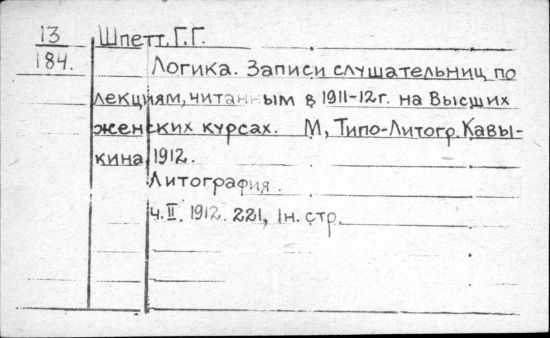 13
184.
Шпетт. Г. Г.
Логика. Записи слушательниц по
лекциям, читанным в 1911-12 г. на Высших
женских курсах. М, Типо-Литогр. Кавы-
кина, 1912.
Литография.
ч. II. 1912. 221, 1 н. стр.